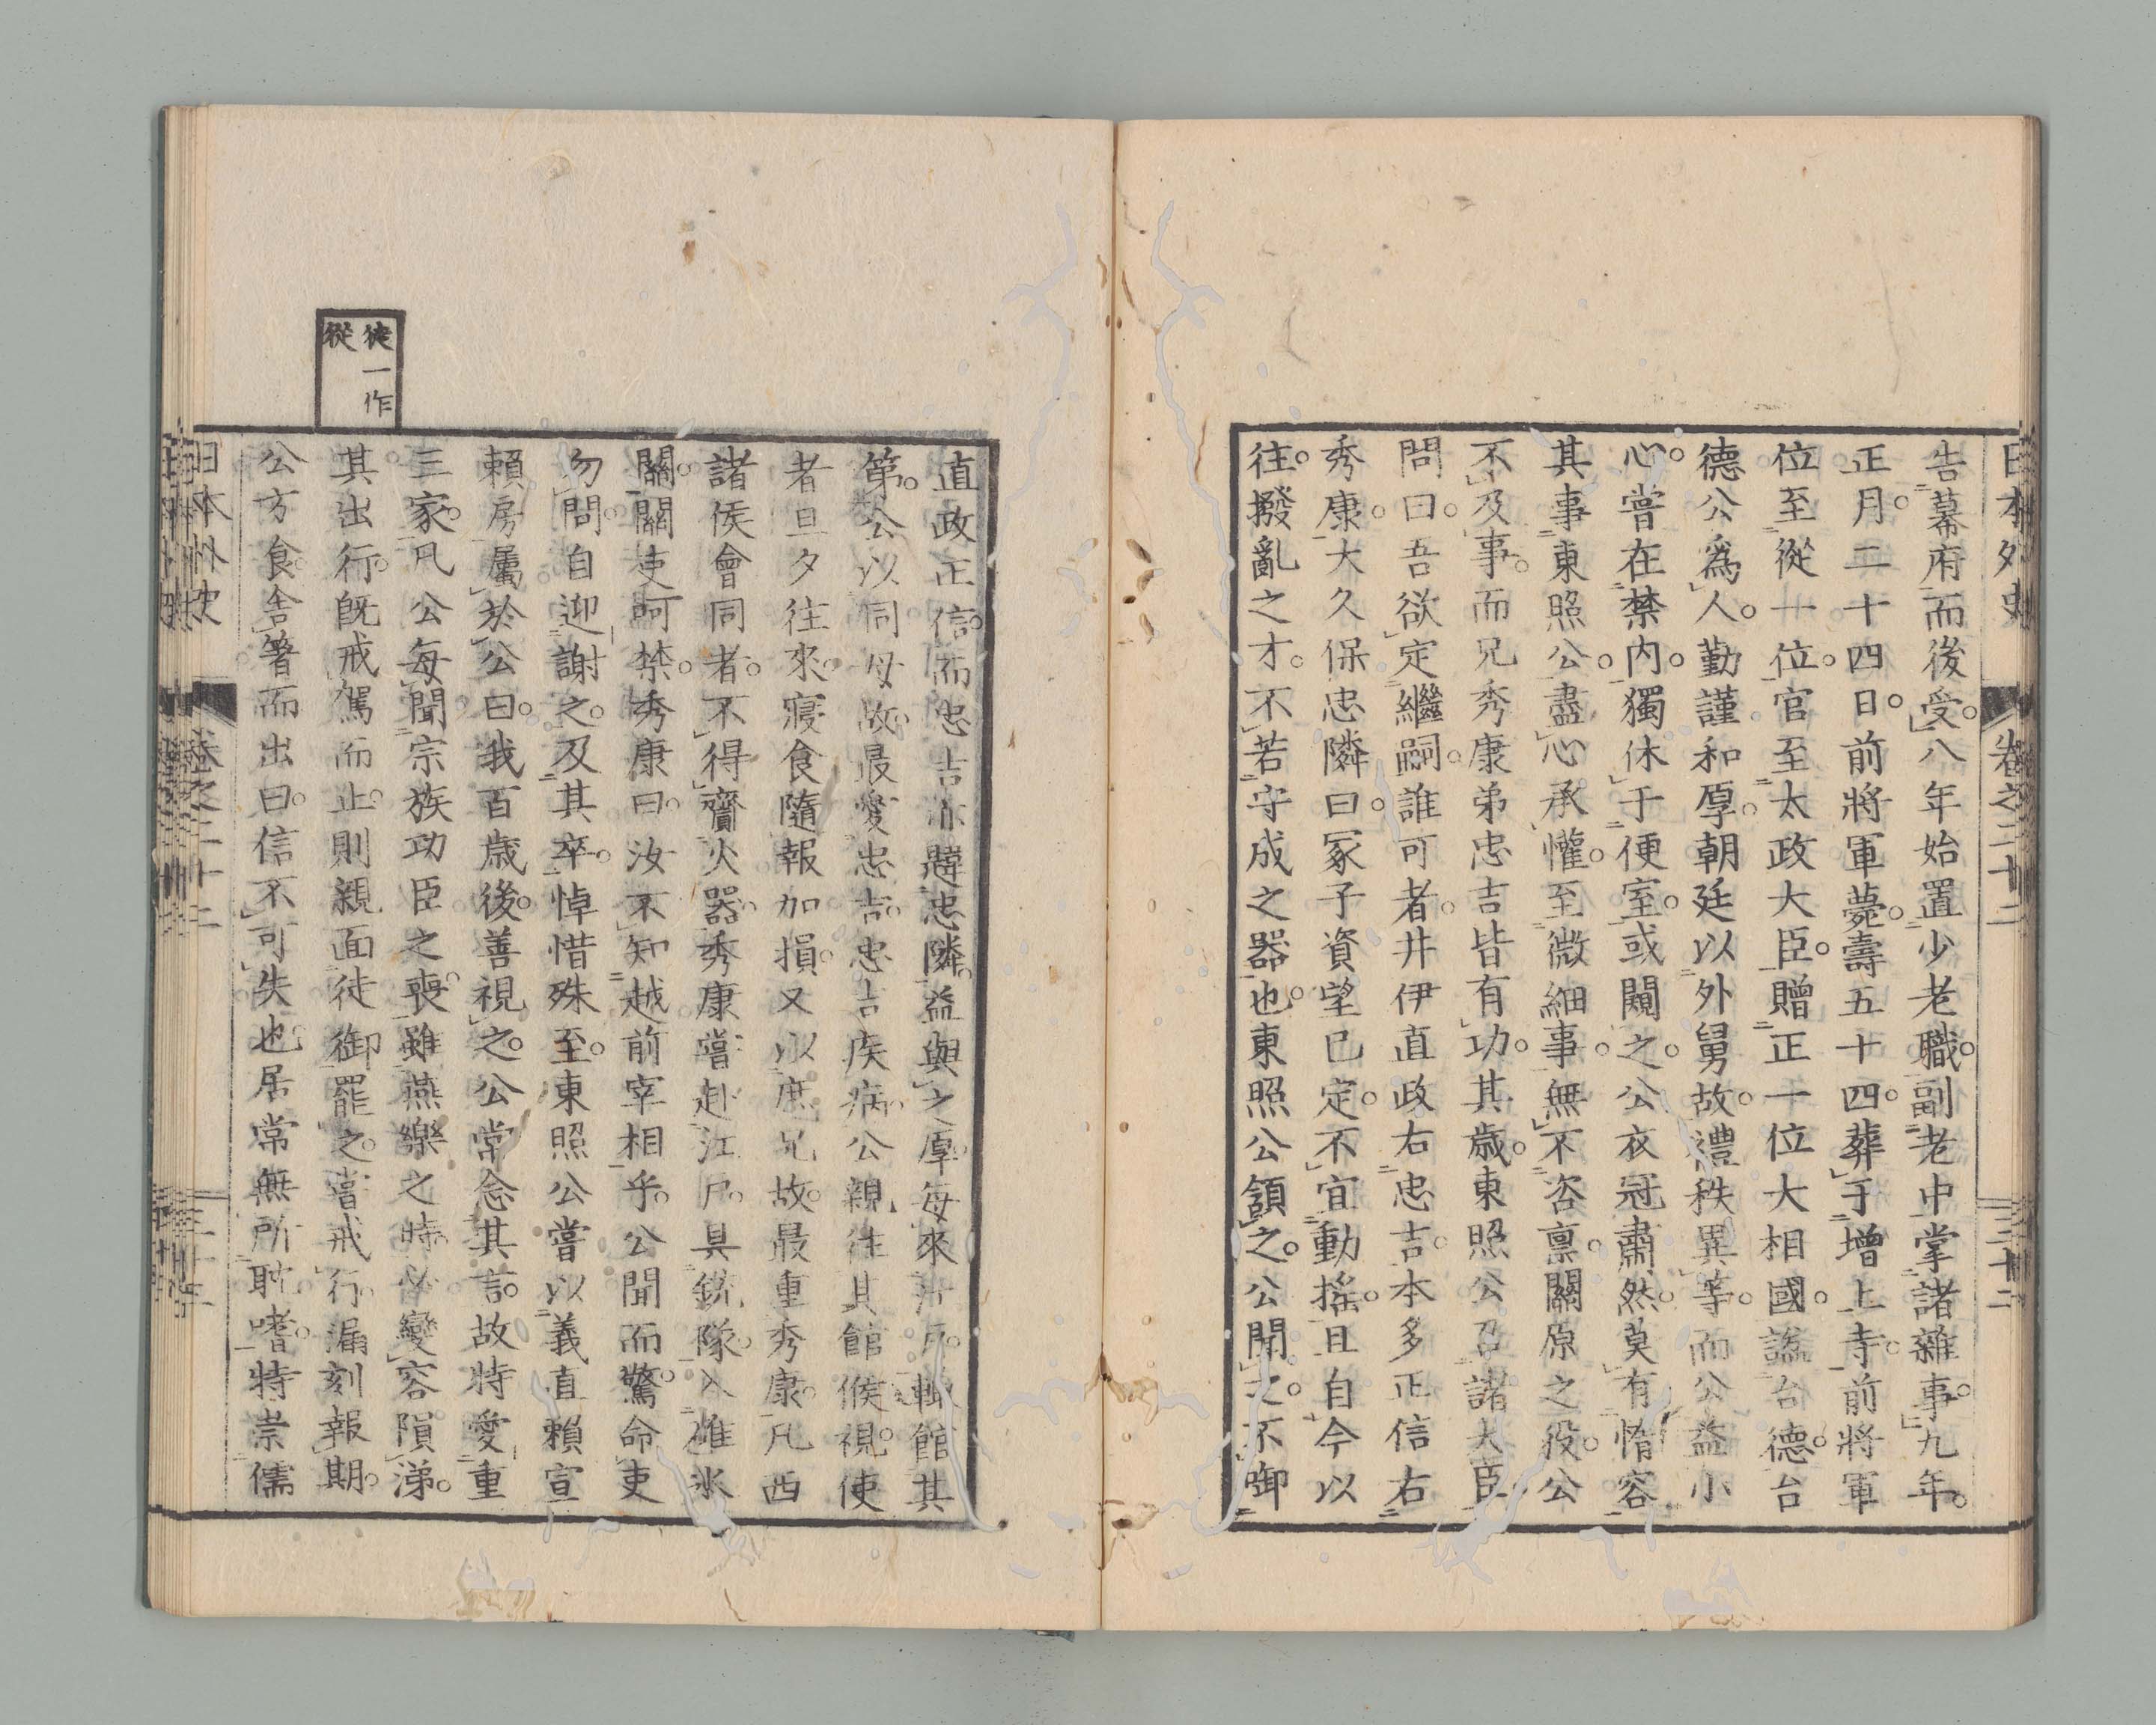 日本外史 卷之二十二 三十二
告幕府而後受。八年始置少老職。副老中掌諸雜事。九年。
正月。二十四日。前將軍薨。壽五十四。葬于增上寺。前將軍
位至從一位。官至太政大臣。贈正一位大相國。諡台德。台
德公爲人。勤謹和厚。朝廷以外舅故。禮秩異等。而公益小
心。嘗在禁內。獨休于便室。或闚之。公衣冠肅然。莫有惰容
其事東照公。盡心承懽。至微細事。無不咨禀。關原之役。公
不及事。而兄秀康弟忠吉皆有功。其歲。東照公召諸大臣
問曰。吾欲定繼嗣。誰可者。井伊直政右忠吉。本多正信右
秀康。大久保忠隣曰。冢子資望已定。不宜動搖。且自今以
往。撥亂之才。不若守成之器也。東照公頷之。公聞之。不啣
直政正信。而忠吉亦韙忠隣。益與之厚。每來江戶。輒館其
第。公以同母故。最愛忠吉。忠吉疾病。公親往其館候視。使
者旦夕往來。寢食隨報加損。又以庶兄故。最重秀康。凡西
諸侯會同者。不得齎火器。秀康嘗赴江戶。具銃隊。入碓氷
關。關吏呵禁。秀康曰。汝不知越前宰相乎。公聞而驚。命吏
勿問。自迎謝之。及其卒。悼惜殊至。東照公嘗以義直賴宣
賴房屬於公曰。我百歲後。善視之。公常念其言。故特愛重
三家。凡公每聞宗族功臣之喪。雖燕樂之時。必變容隕涕。
其出行。旣戒駕而止。則親面徒御罷之。嘗戒行。漏刻報期。
公方食。舍箸而出曰。信不可失也。居常無所耽嗜。特崇儒
徒一作
從
日本外史 卷之二十二